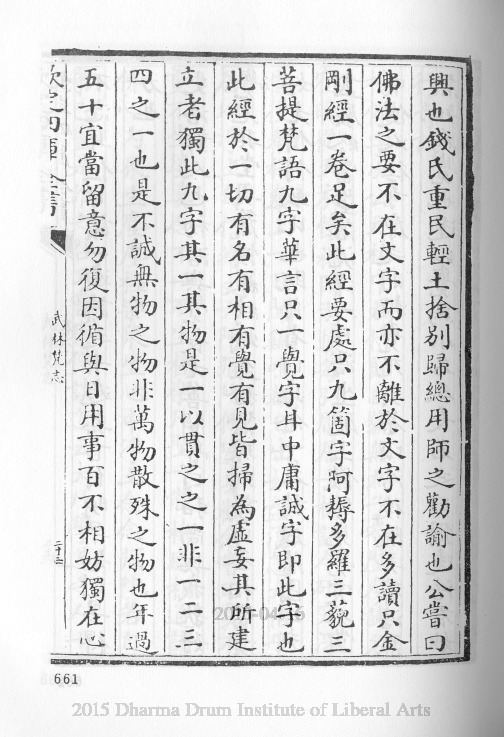 興也錢氏重民輕土捨別歸總用師之勸諭也公嘗曰
佛法之要不在文字而亦不離於文字不在多讀只金
剛經一卷足矣此經要處只九箇字阿耨多羅三藐三
菩提梵語九字華言只一覺字耳中庸誠字即此字也
此經於一切有名有相有覺有見皆掃為虛妄其所建
立者獨此九字其一其物是一以貫之之一非一二三
四之一也是不誠無物之物非萬物散殊之物也年過
五十宜當留意勿復因循與日用事百不相妨獨在心
欽定四庫全書
武林梵志
661
2015 Dharma Drum Institute of Liberal Arts